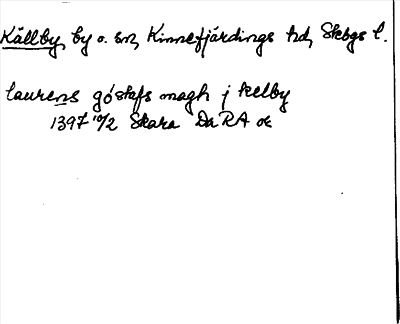 Källby, by o. sn, Kinnefjärdings hd, Skbgs l.
laurens góstafs magh j kelby
1397 10/2 Skara DaRA or